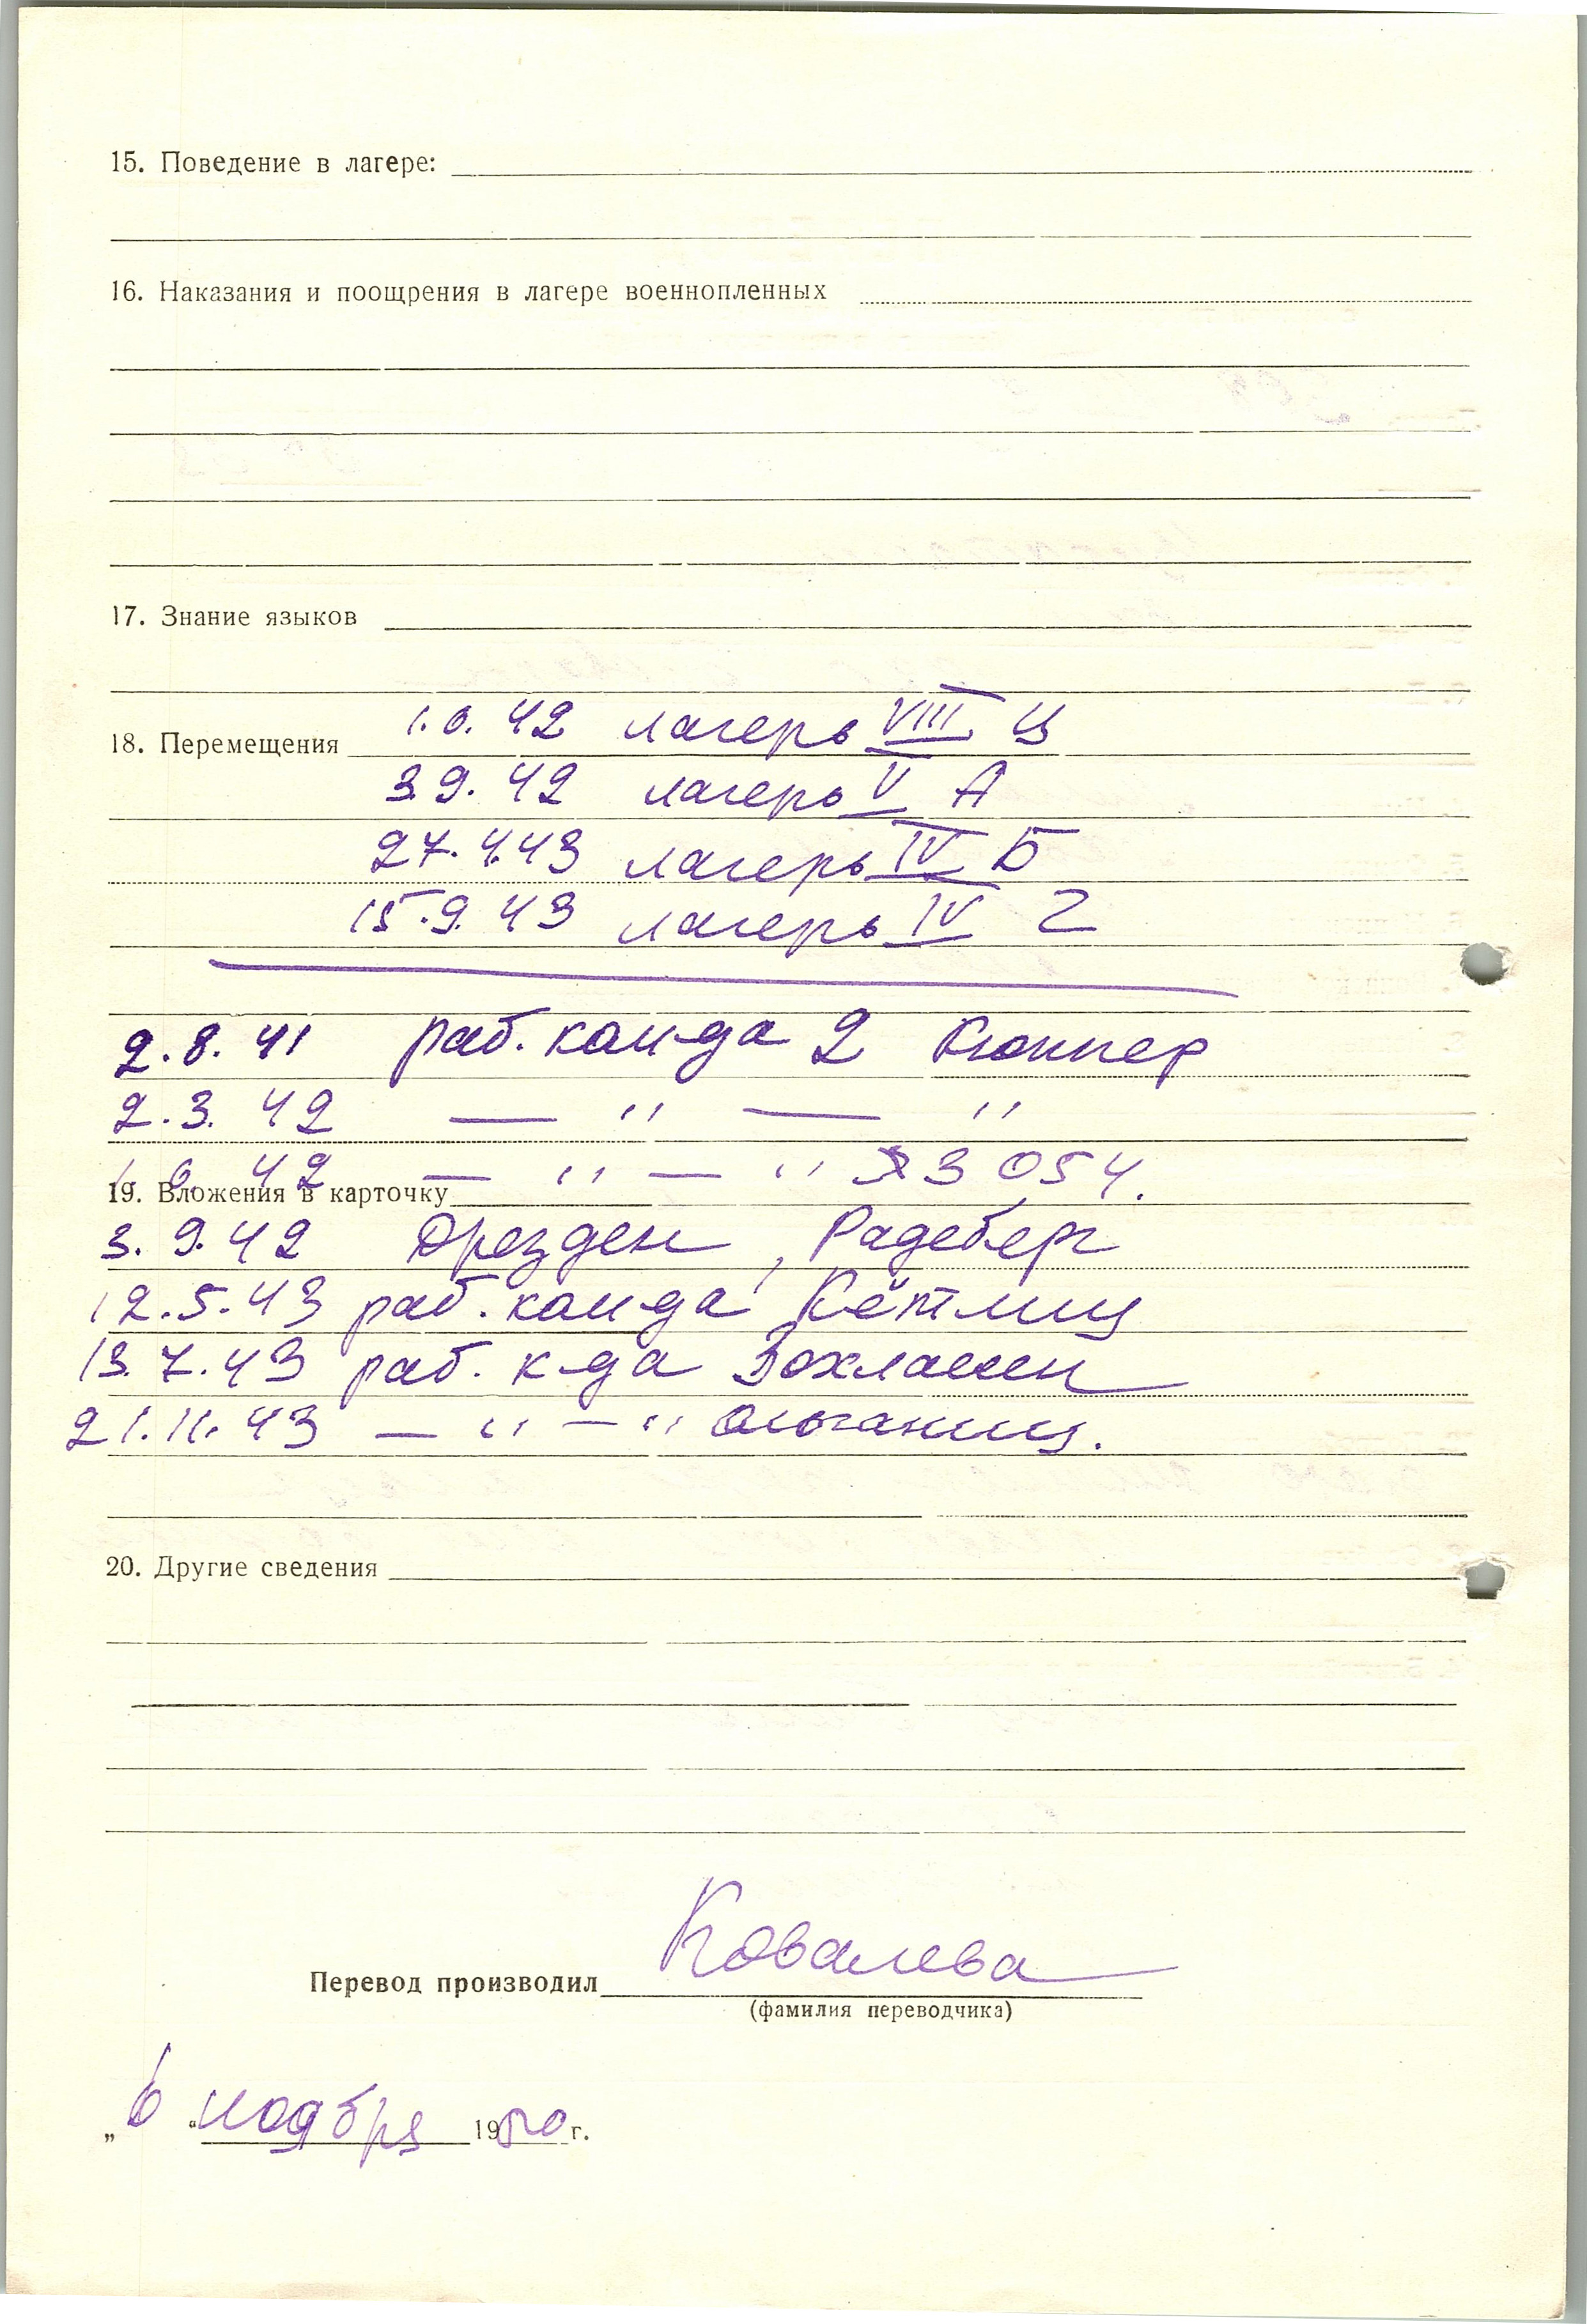 15. Поведение в лагере:
16. Наказания и поощрения в лагере военнопленных
17. Знание языков
18. Перемещения 1.6.42 лагерь VIII Ц
3.9.42 лагерь V А
27.4.43 лагерь IV Б
15.9.43 лагерь IV Г
2.8.41 раб. кои-да 2 Кюппер
2.3.42 — " — "
1.6.42 — " — " 3 054.
19. Вложения в карточку
3.9.42 Дрезден, Радеберг
12.5.43 раб. кои-да Кётлиц
13.7.43 раб. к-да
21.11.43 — " — "
20. Другие сведения
Перевод производил Ковалева
(фамилия переводчика)
„6“ ноября 1950 г.